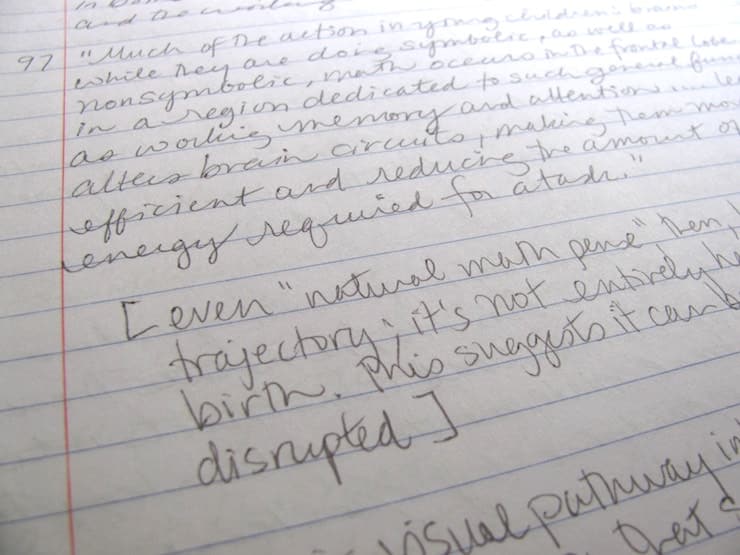 and the
97 "Much of the action in young children's brains
while they are doing symbolic, as well as
nonsymbolic, math occurs in the frontal lobe
in a region dedicated to such general
as working memory and attention...
alters brain circuits, making them more
efficient and reducing the amount of
energy required for a task."
[even "natural math
trajectory; it's not entirely
birth. This suggests it can be
disrupted]
visual pathway in
that